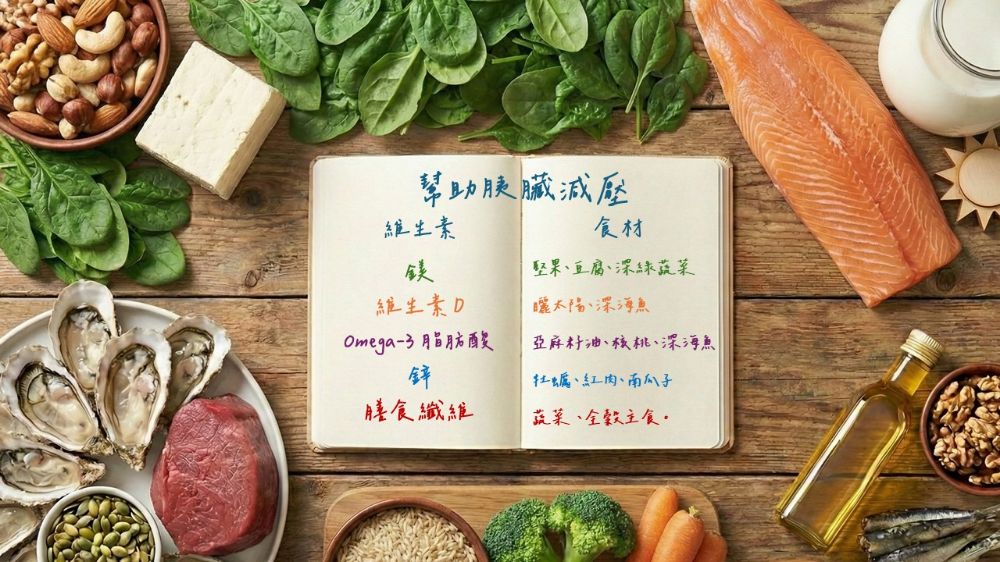 幫助胰臟減壓
維生素 食材
鎂 堅果、豆腐、深綠蔬菜
維生素D 曬太陽、深海魚
Omega-3 脂肪酸 亞麻籽油、核桃、深海魚
鋅 牡蠣、紅肉、南瓜子
膳食纖維 蔬菜、全穀主食。